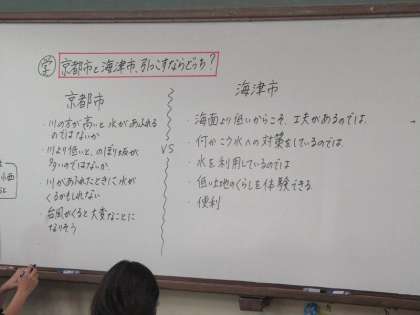 学 京都市と海津市、引っこすならどっち?
京都市
・川の方が高いと水があふれる
のではないか
・川より低いと、のぼり坂が
多いのではないか。
・川があふれたときに水が
くるかもしれない
・台風がくると大変なことに
なりそう
VS
海津市
・海面より低いからこそ、工夫があるのでは。
・何かこう水への対策をしているのでは。
・水を利用しているのでは
・低い土地のくらしを体験できる
・便利